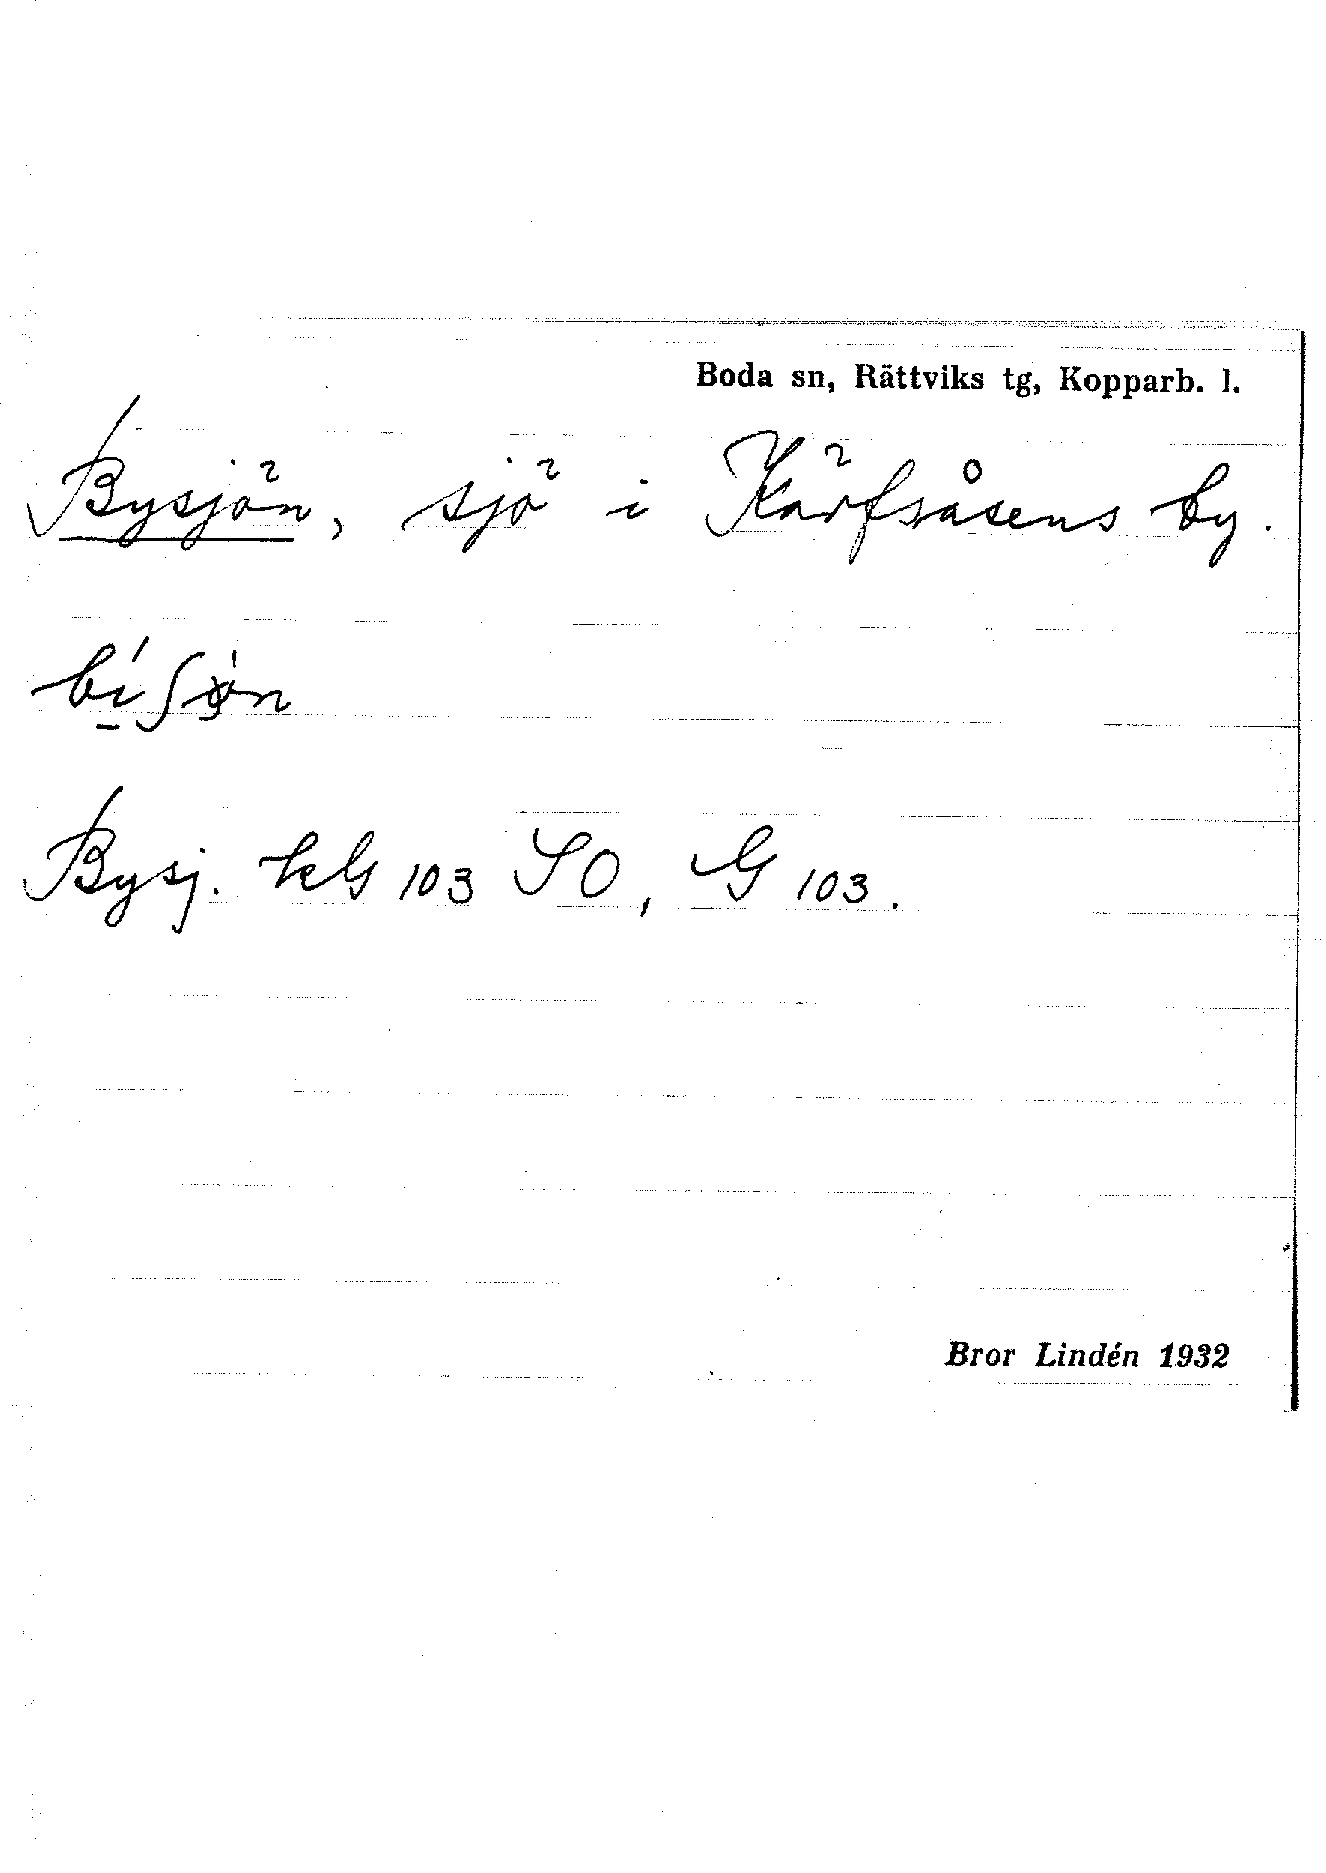 Boda sn, Rättviks tg, Kopparb. l.
Bysjön, sjö i Kärfsåsens by.
Bysj. kG 103 SO, G 103.
Bror Lindén 1932